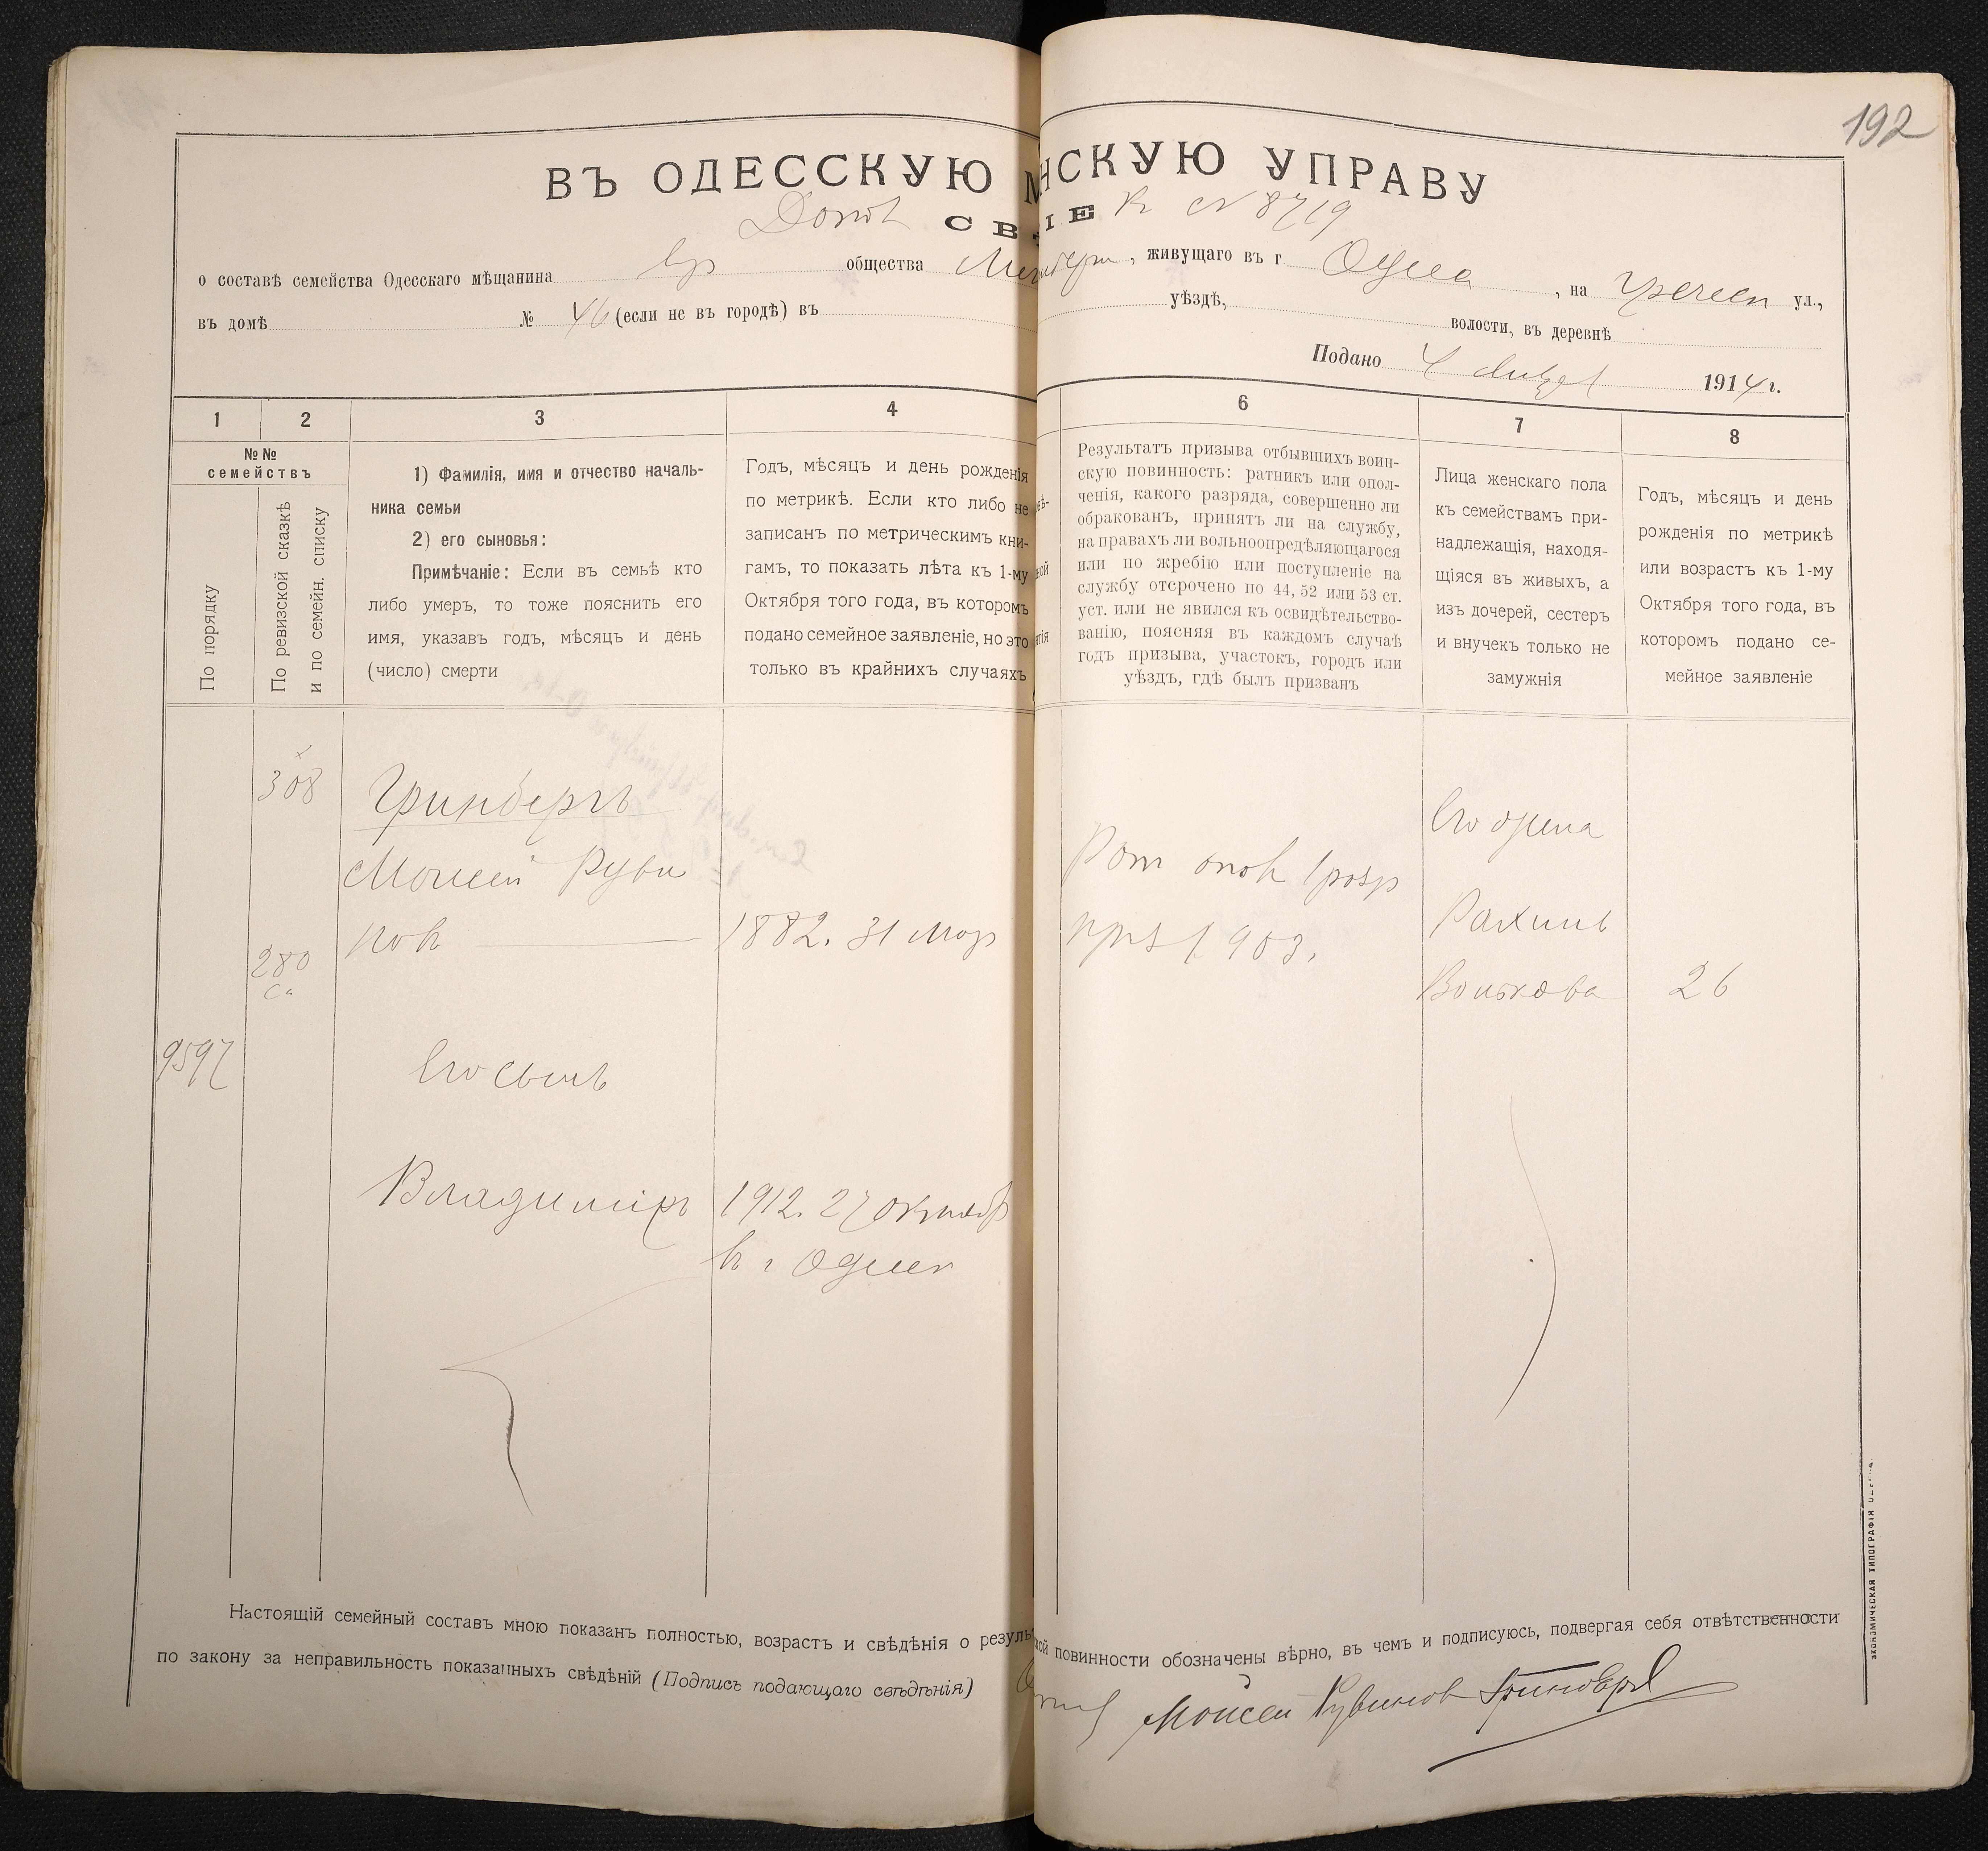 192
ВЪ ОДЕССКУЮ М НСКУЮ УПРАВУ
СВ ІЕ К № 8719
о составѣ семейства Одесскаго мѣщанина Евр общества , живущаго въ г. Одесса, на Греческ ул.,
въ домѣ № 46 (если не въ городѣ) въ уѣздѣ, волости, въ деревнѣ
Подано 4 1914 г.
1 2 3 4 6 7 8
№№ семействъ
По порядку
По ревизской сказкѣ
и по семейн. списку
1) Фамилія, имя и отчество началь-
ника семьи
2) его сыновья:
Примѣчаніе: Если въ семьѣ кто
либо умеръ, то тоже пояснить его
имя, указавъ годъ, мѣсяцъ и день
(число) смерти
Годъ, мѣсяцъ и день рожденія
по метрикѣ. Если кто либо не
записанъ по метрическимъ кни-
гамъ, то показать лѣта къ 1-му
Октября того года, въ которомъ
подано семейное заявленіе, но это
только въ крайнихъ случаяхъ
Результатъ призыва отбывшихъ воин-
скую повинность: ратникъ или опол-
ченія, какого разряда, совершенно ли
обракованъ, принятъ ли на службу,
на правахъ ли вольноопредѣляющагося
или по жребію или поступленіе на
службу отсрочено по 44, 52 или 53 ст.
уст. или не явился къ освидѣтельство-
ванію, поясняя въ каждомъ случаѣ
годъ призыва, участокъ, городъ или
уѣздъ, гдѣ былъ призванъ
Лица женскаго пола
къ семействамъ при-
надлежащія, находя-
щіяся въ живыхъ, а
изъ дочерей, сестеръ
и внучекъ только не
замужнія
Годъ, мѣсяцъ и день
рожденія по метрикѣ
или возрастъ къ 1-му
Октября того года, въ
которомъ подано се-
мейное заявленіе
308
Гринбергъ
Моисей Руви
новъ 1882. 31 Мар
280
Рат опол 1 разр
приз 1903.
Его жена
Рахиль
Волькова 26
9597
Его сынъ
Владиміръ 1912. 27 Октябр
въ г Одессѣ
Настоящій семейный составъ мною показанъ полностью, возрастъ и свѣдѣнія о резуль кой повинности обозначены вѣрно, въ чемъ и подписуюсь, подвергая себя отвѣтственности
по закону за неправильность показанныхъ свѣдѣній (Подпись подающаго свѣдѣнія) Моисей Рувинов Гринберг
ЭКОНОМИЧЕСКАЯ ТИПОГРАФІЯ